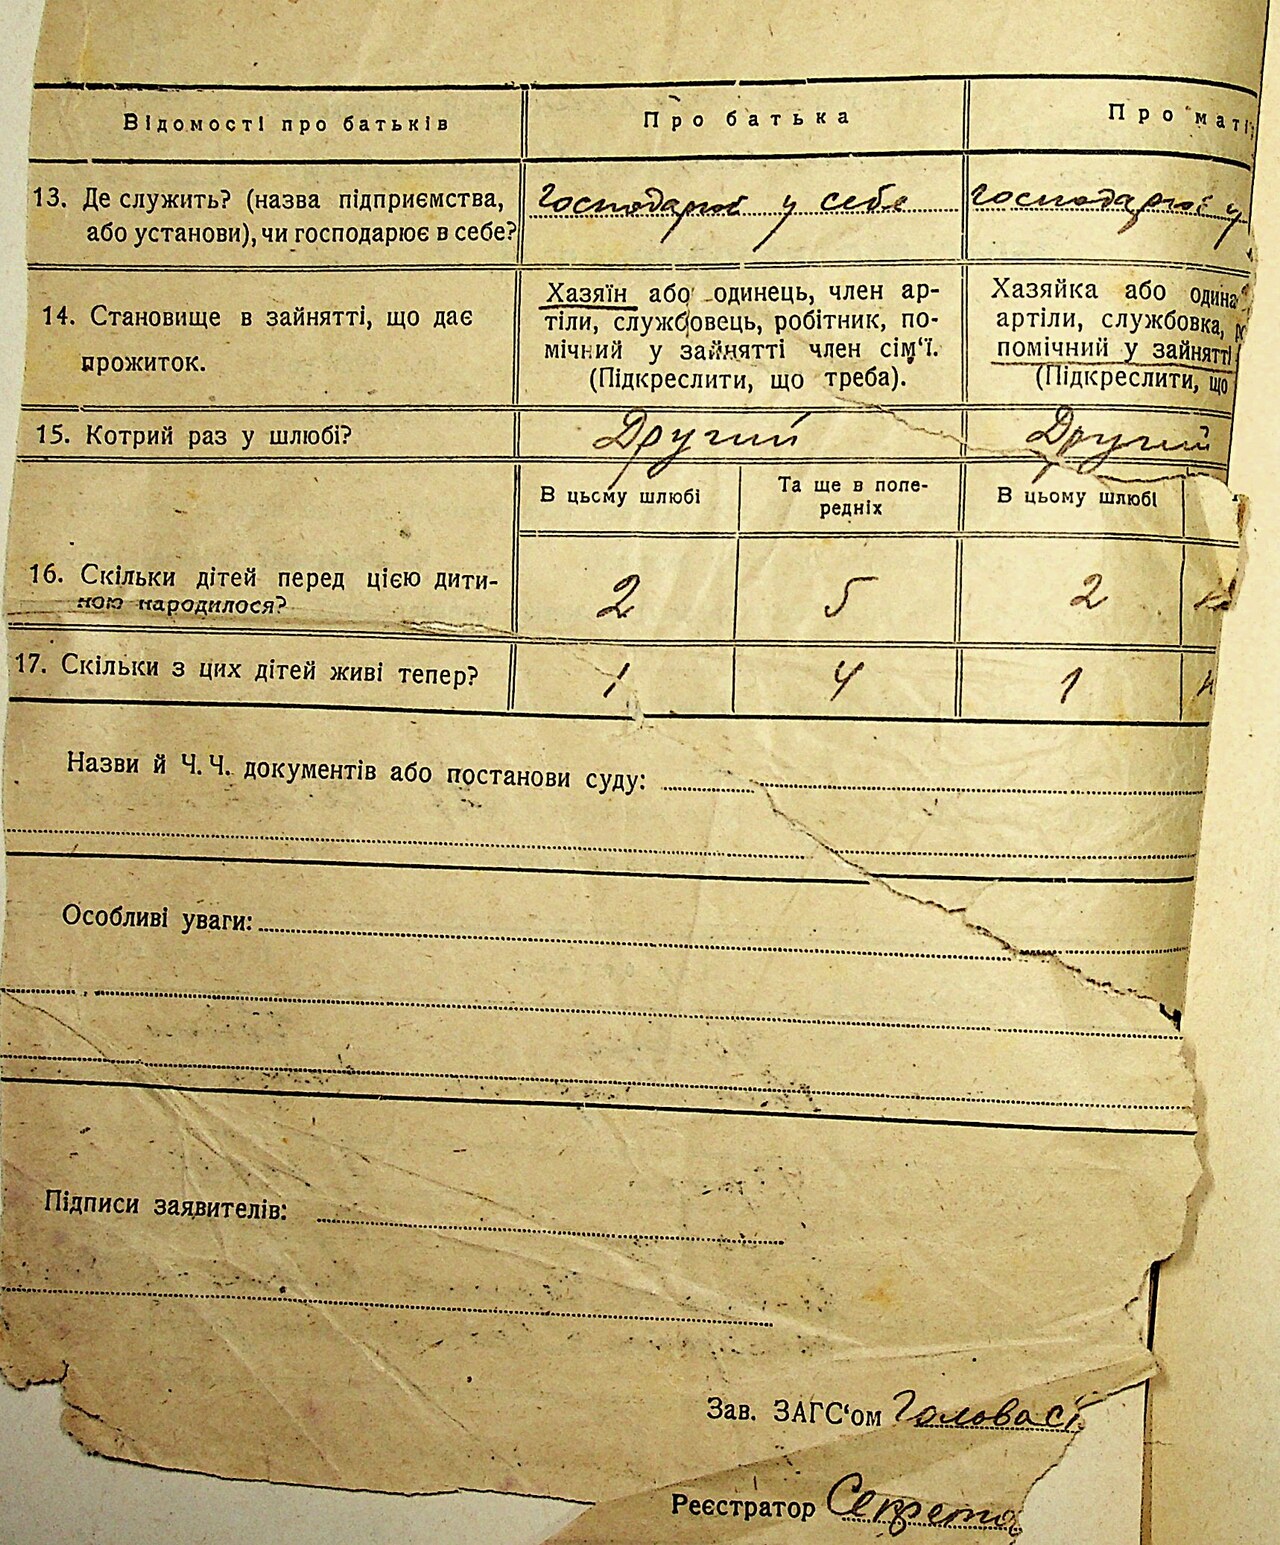 Відомості про батьків Про батька Про маті
13. Де служить? (назва підприємства, або установи), чи господарює в себе?
Господарює у себе
Господарює у
14. Становище в зайнятті, що дає прожиток.
Хазяїн або одинець, член ар-
тіли, службовець, робітник, по-
мічний у зайнятті член сім'ї.
(Підкреслити, що треба).
Хазяйка або одина
артіли, службовка, ро
помічний у зайнятті
(Підкреслити, що
15. Котрий раз у шлюбі? Другий Другий
В цьому шлюбі
Та ще в попе-
редніх
В цьому шлюбі
16. Скільки дітей перед цією дити-
ною народилося? 2 5 2
17. Скільки з цих дітей живі тепер? 1 4 1
Назви й Ч. Ч. документів або постанови суду:
Особливі уваги:
Підписи заявителів:
Зав. ЗАГС'ом Голова сі
Реєстратор Секрета